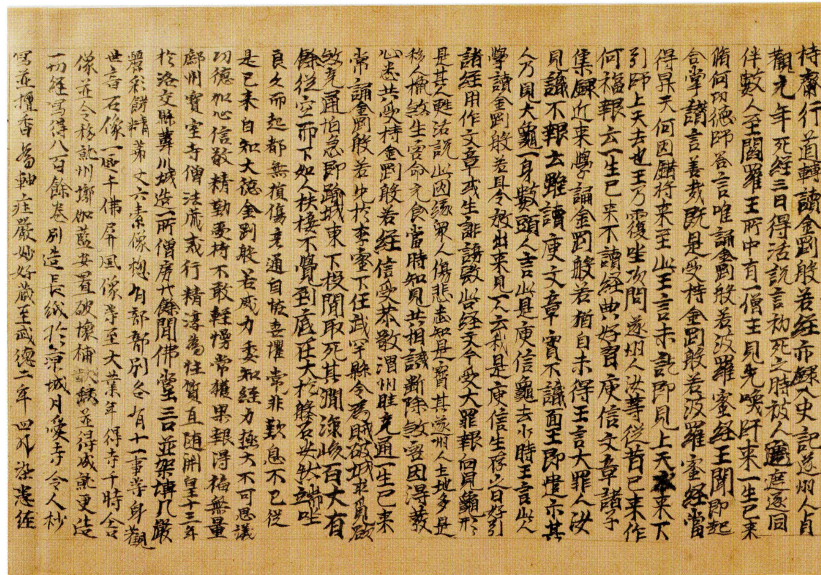 持齋行道轉讀金剛般若經亦錄入史記遂州人貞
觀元年死經三日得活說言初死之時被人遮逐同
伴數人至閻羅王所中有一僧王見先喚師來一生已來
脩何功德師答言唯誦金剛般若波羅蜜經王聞即起
合掌讚言善哉既是受持金剛般若波羅蜜經當
得昇天何因錯將來至此王言未訖即見上天來下
引師上天去也王乃覆坐次問遂州人汝等從昔已來作
何福報云一生已來不讀經典好習庾信文章諸子
集錄近來學誦金剛般若猶自未得王言大罪人汝
見識不報云雖讀庾文章實不識面王即遣示其
人乃見大龜一身數頭人言此是庾信龜去少時王言此人
學讀金剛般若且令放出來見一人云我是庾信生存之日好引
諸經用作文章或生誹謗毀此經文今受大罪報向見龜形
是其人甦活說此因緣眾人傷悲悉知是實其遂州人土地多是
移人獵煞生害命充食當時知見共相識漸除煞害因得發
心悉共受持金剛般若經信受恭敬渭州通一生已來
常誦金剛般若於李密下任武牢縣令為賊破城求覓欲
煞通怕急即踰城東下投澗取死其澗深峻百丈有
餘從空而下如人扶接不覺到底在大樹磐石安然端坐
良久而起都無損傷通自喜懼常非歎息不已從
是已來自知大德金剛般若威力委知經力極大不可思議
功德加心信敬精勤受持不敢輕慢常獲果報得福無量
鄜州寶室寺僧法藏戒行精淳為性質直隨開皇十三年
於洛交縣葦川城造一所僧房廿餘間佛堂三口並架磚瓦嚴
麗彩餝精華丈六素像總有部部別各有十一事等身觀
世音石像一區千佛屏風像等至大業年得寺干時舍
像並令移就州墎伽藍安置破壞補缺並得成就更造
一切經寫得八百餘卷別造長紙於京城月愛寺令人抄
寫並檀香為軸庄嚴妙好藏至武德二年四月染患經